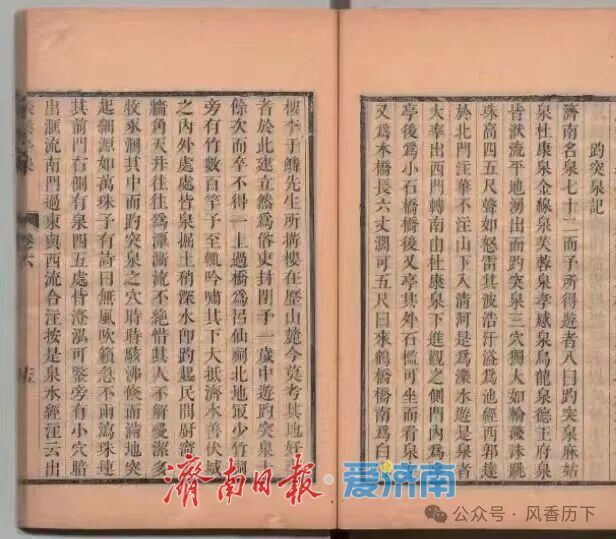 趵突泉記
濟南名泉七十二而予所得遊者八曰趵突泉麻姑
泉杜康泉金線泉芙蓉泉孝感泉烏龍泉德王府泉
皆洑流平地湧出而趵突泉三穴獨大如輪濺沫跳
珠高四五尺聲如怒雷其波浩汗溢爲池經西郭達
於北門注華不注山下入清河是爲濼水遊是泉者
大率出西門轉南由杜康泉進觀之側門內爲
亭後爲小石橋橋又亭其外石檻可坐而看泉
又爲木橋長六丈濶可五尺曰來鶴橋橋南爲白
樓李于鱗先生所搆樓在歷山麓今莫考其地好
者於此建立然爲俗吏封閉予一歲中遊趵突泉
餘次而卒不得一上過橋爲呂仙祠北地寂少竹祠
旁有竹數百竿予至輒吟嘯其下大抵濟水善伏城
之內外處處皆泉掘土稍深水卽趵起民間厨竈
牆角天井往往爲潭漸流不絕惜其人不解愛潔多
牧豕溷其中而趵突泉之穴時時駭沸倏而滿地突
起細源如萬珠予有詩曰無風吹籟急不雨萬珠連
其前門右側有泉四五處皆澄泓可鑒旁有小穴暗
出洄流南門過東與西流合注按是泉水經注云出
卷六
濟南日報·爱济南
公众号·风香历下